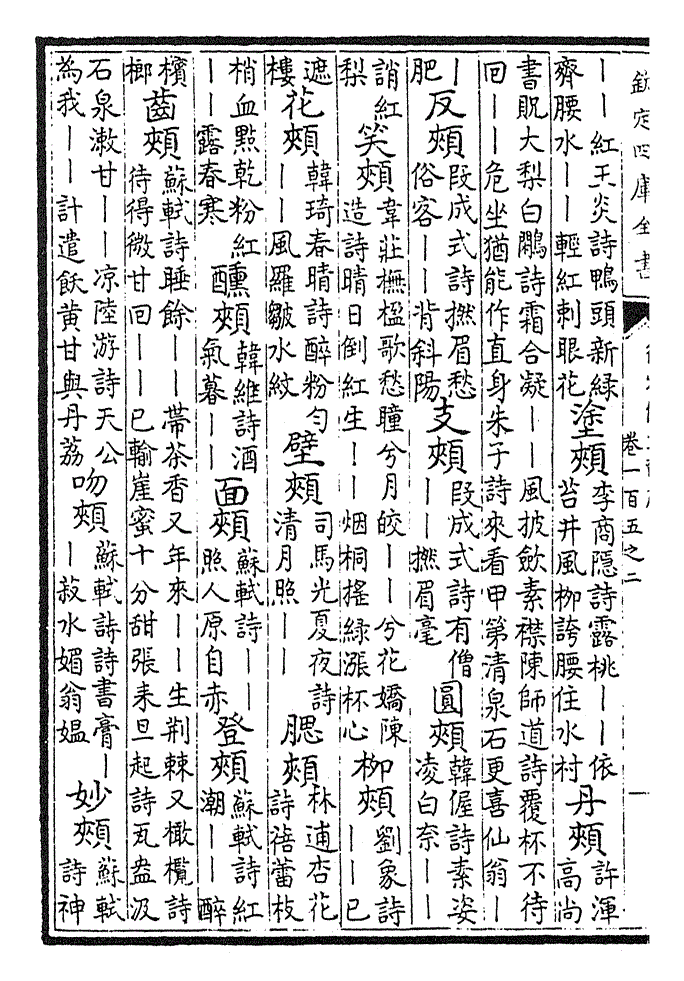 欽定四庫全書
卷一百五之二
——紅王炎詩鴨頭新緑齊腰水——輕紅刺眼花塗頰李商隱詩露桃——依苔井風柳誇腰住水村丹頰許渾高尚
書貺大梨白鷴詩霜合凝——風披歛素襟陳師道詩覆杯不待回——危坐猶能作直身朱子詩來看甲第清泉石更喜仙翁—
—肥反頰段成式詩撚眉愁俗客——背斜陽支頰段成式詩有僧——撚眉毫圓頰韓偓詩素姿凌白奈——
誚紅梨笑頰韋莊撫楹歌愁瞳兮月皎——兮花嬌陳造詩晴日倒紅生——烟桐摇緑漲杯心柳頰劉象詩——已
遮樓花頰韓琦春晴詩醉粉勻——風羅皺水紋壁頰司馬光夏夜詩清月照——腮頰林逋杏花詩蓓蕾枝
梢血點乾粉紅——露春寒醺頰韓維詩酒氣暮——面頰蘇軾詩——照人原自赤登頰蘇軾詩紅潮——醉
檳榔齒頰蘇軾詩睡餘——帶茶香又年來——生荆棘又橄欖詩待得微甘回——已輸崖蜜十分甜張耒旦起詩瓦盎汲
石泉漱甘——凉陸游詩天公為我——計遣飫黄甘與丹荔吻頰蘇軾詩詩書膏——菽水媚翁媪妙頰蘇軾詩神